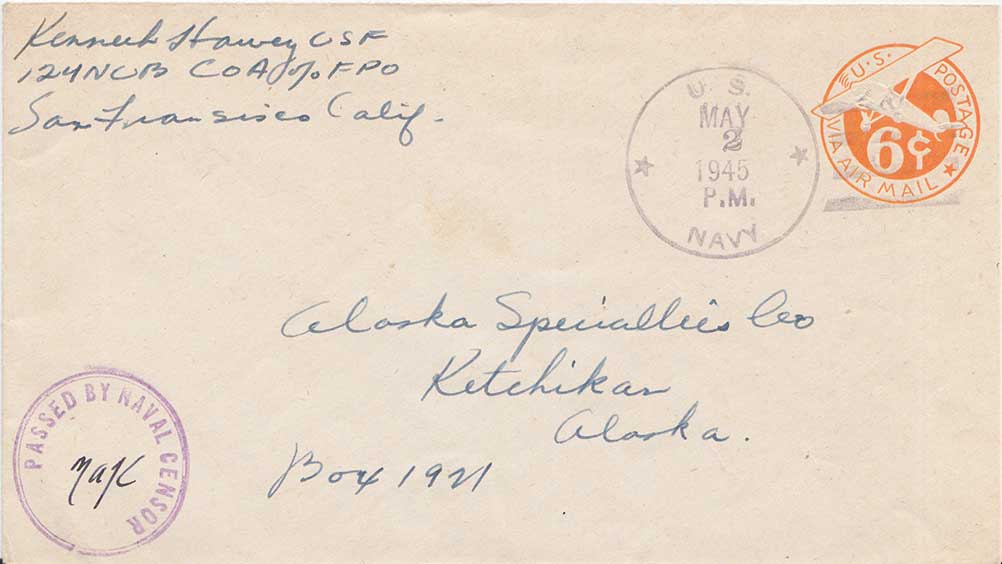 Kenneth Harvey USF
124 NCB CO A % FPO
San Fransisco Calif.
U. S.
MAY
2
1945
P.M.
NAVY
U.S. POSTAGE
6¢
VIA AIR MAIL
Alaska Specialties Co
Ketchikan
Alaska.
Box 1921
PASSED BY NAVAL CENSOR